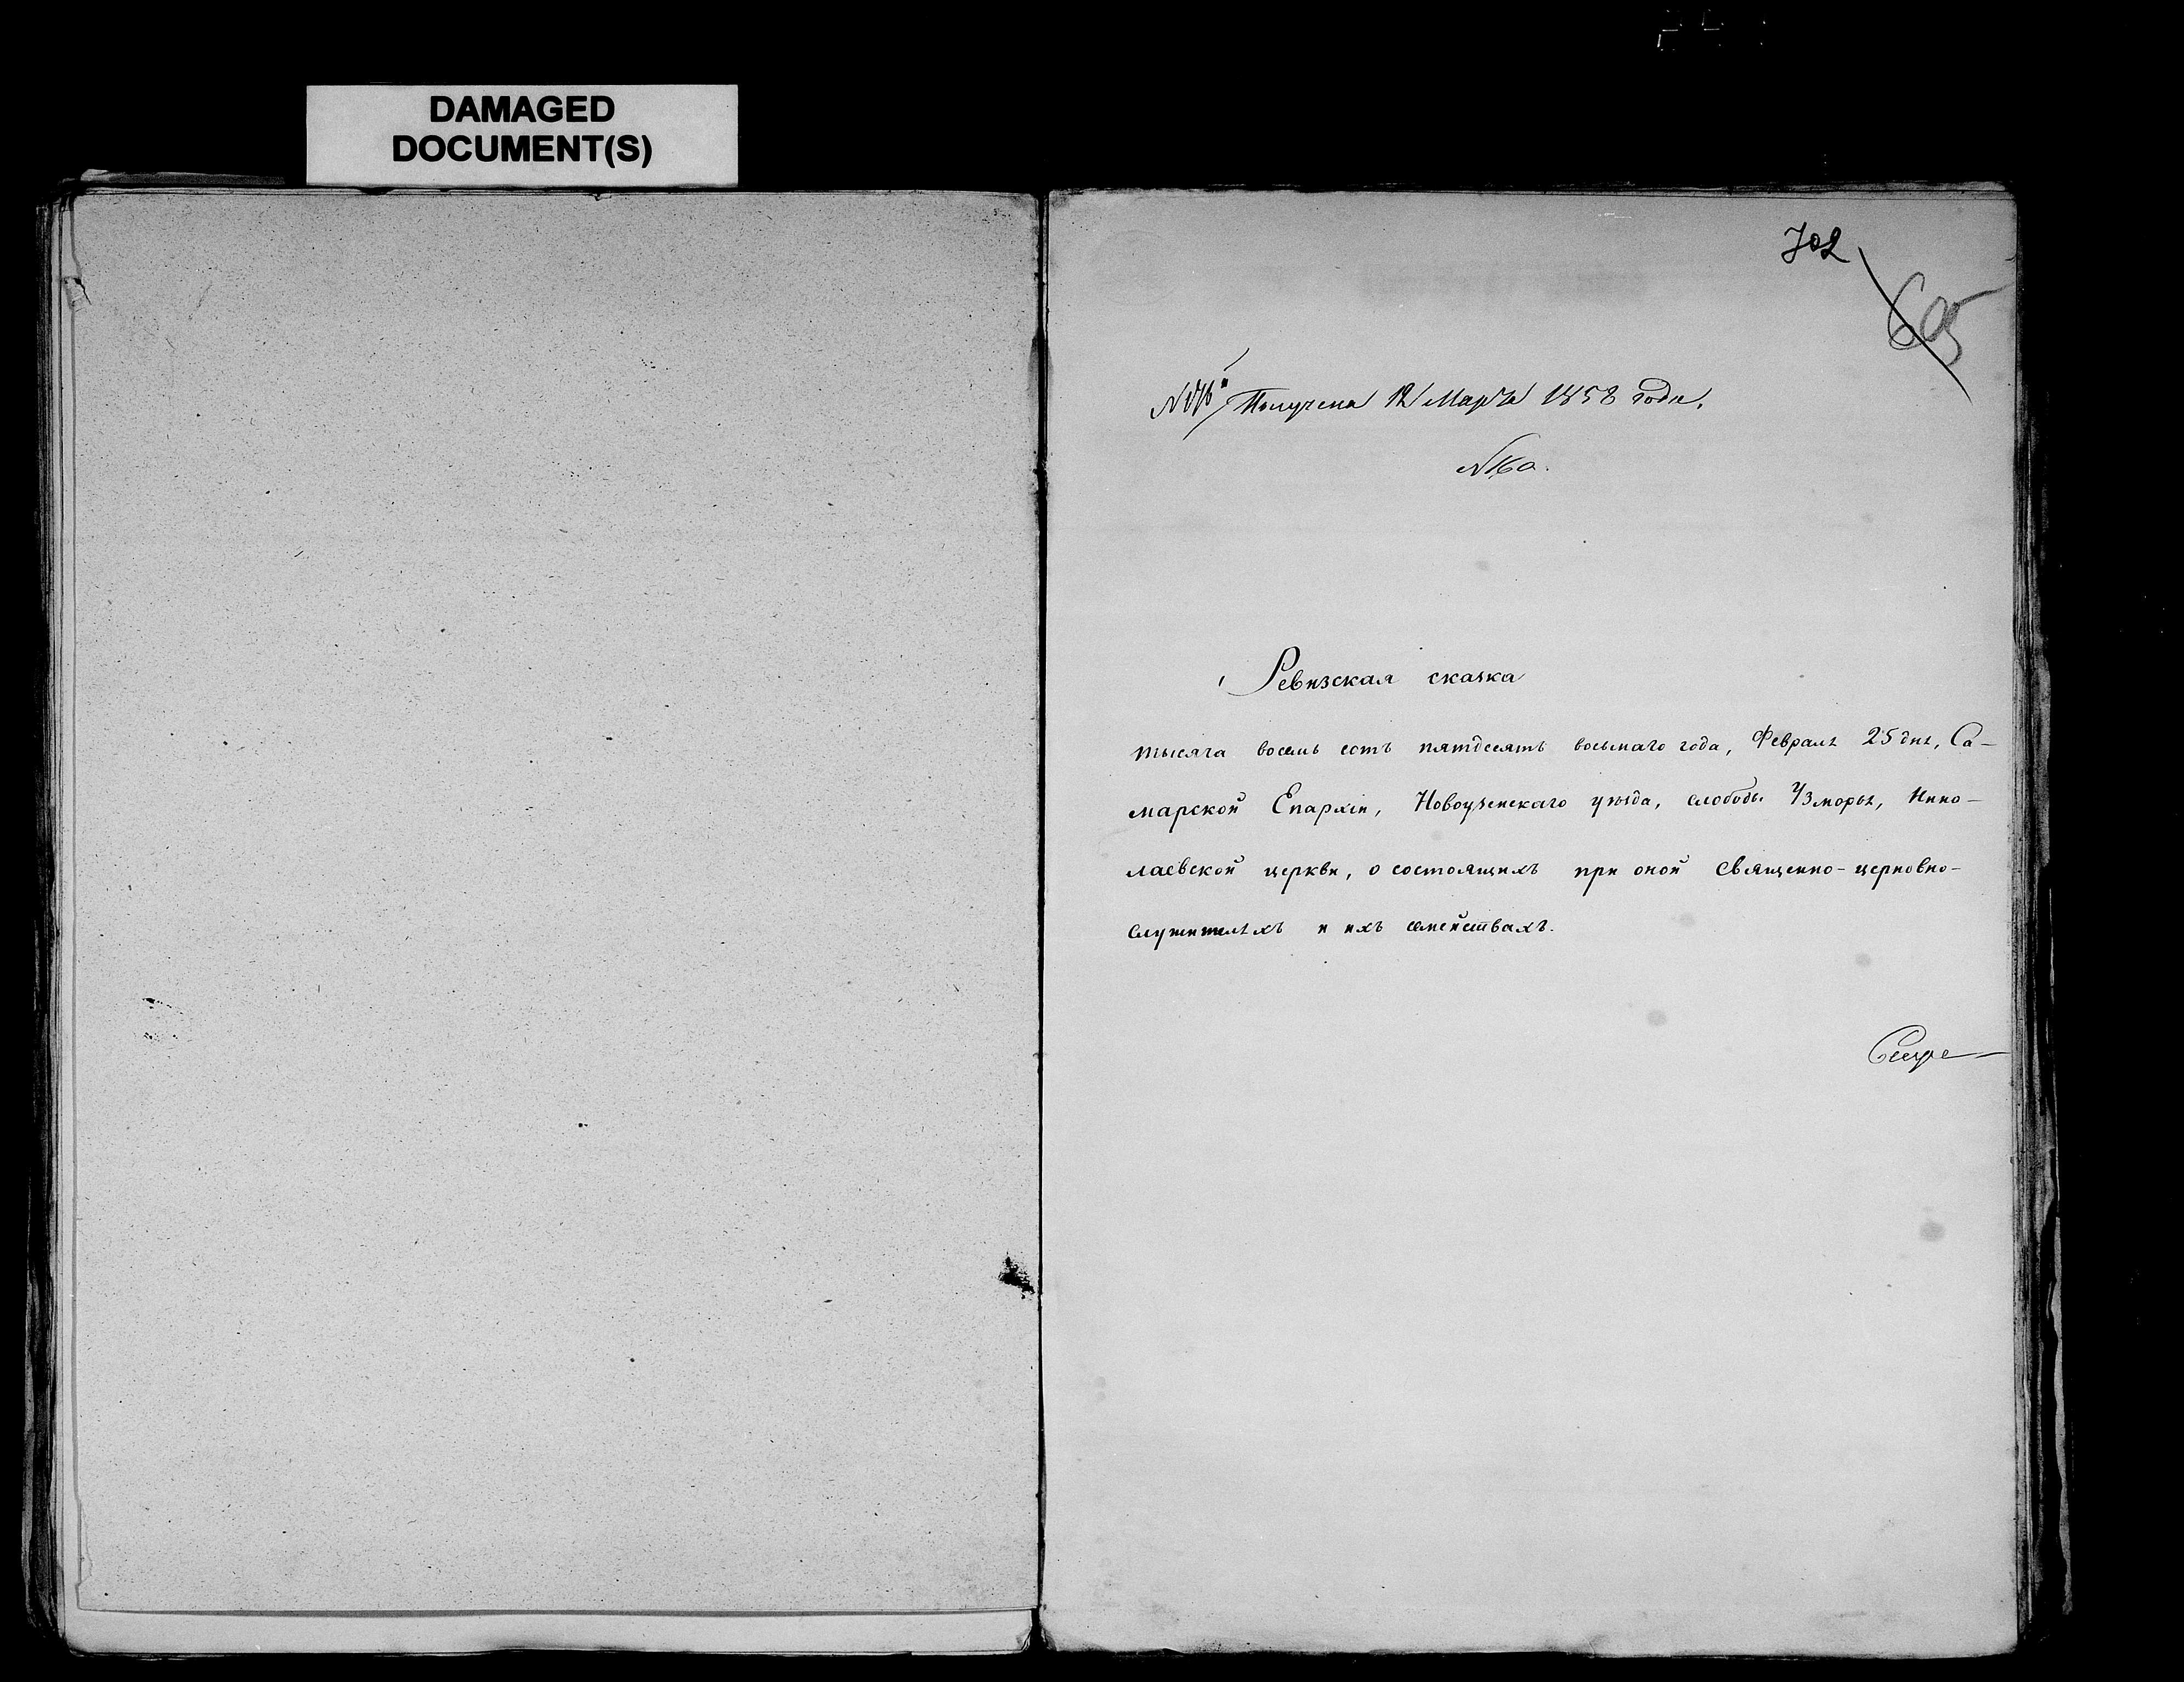 DAMAGED
DOCUMENT(S)
702
605
Получена 12 Марта 1858 года.
N 160.
Ревизская сказка
тысяча восемь сотъ пятдесятъ восьмаго года, Февраля 25 дня, Са-
марской Епархіи, Новоузенскаго уѣзда, слободы Узморья, Нико-
лаевской церкви, о состоящихъ при оной священно-церковно-
служителяхъ и ихъ семействахъ.